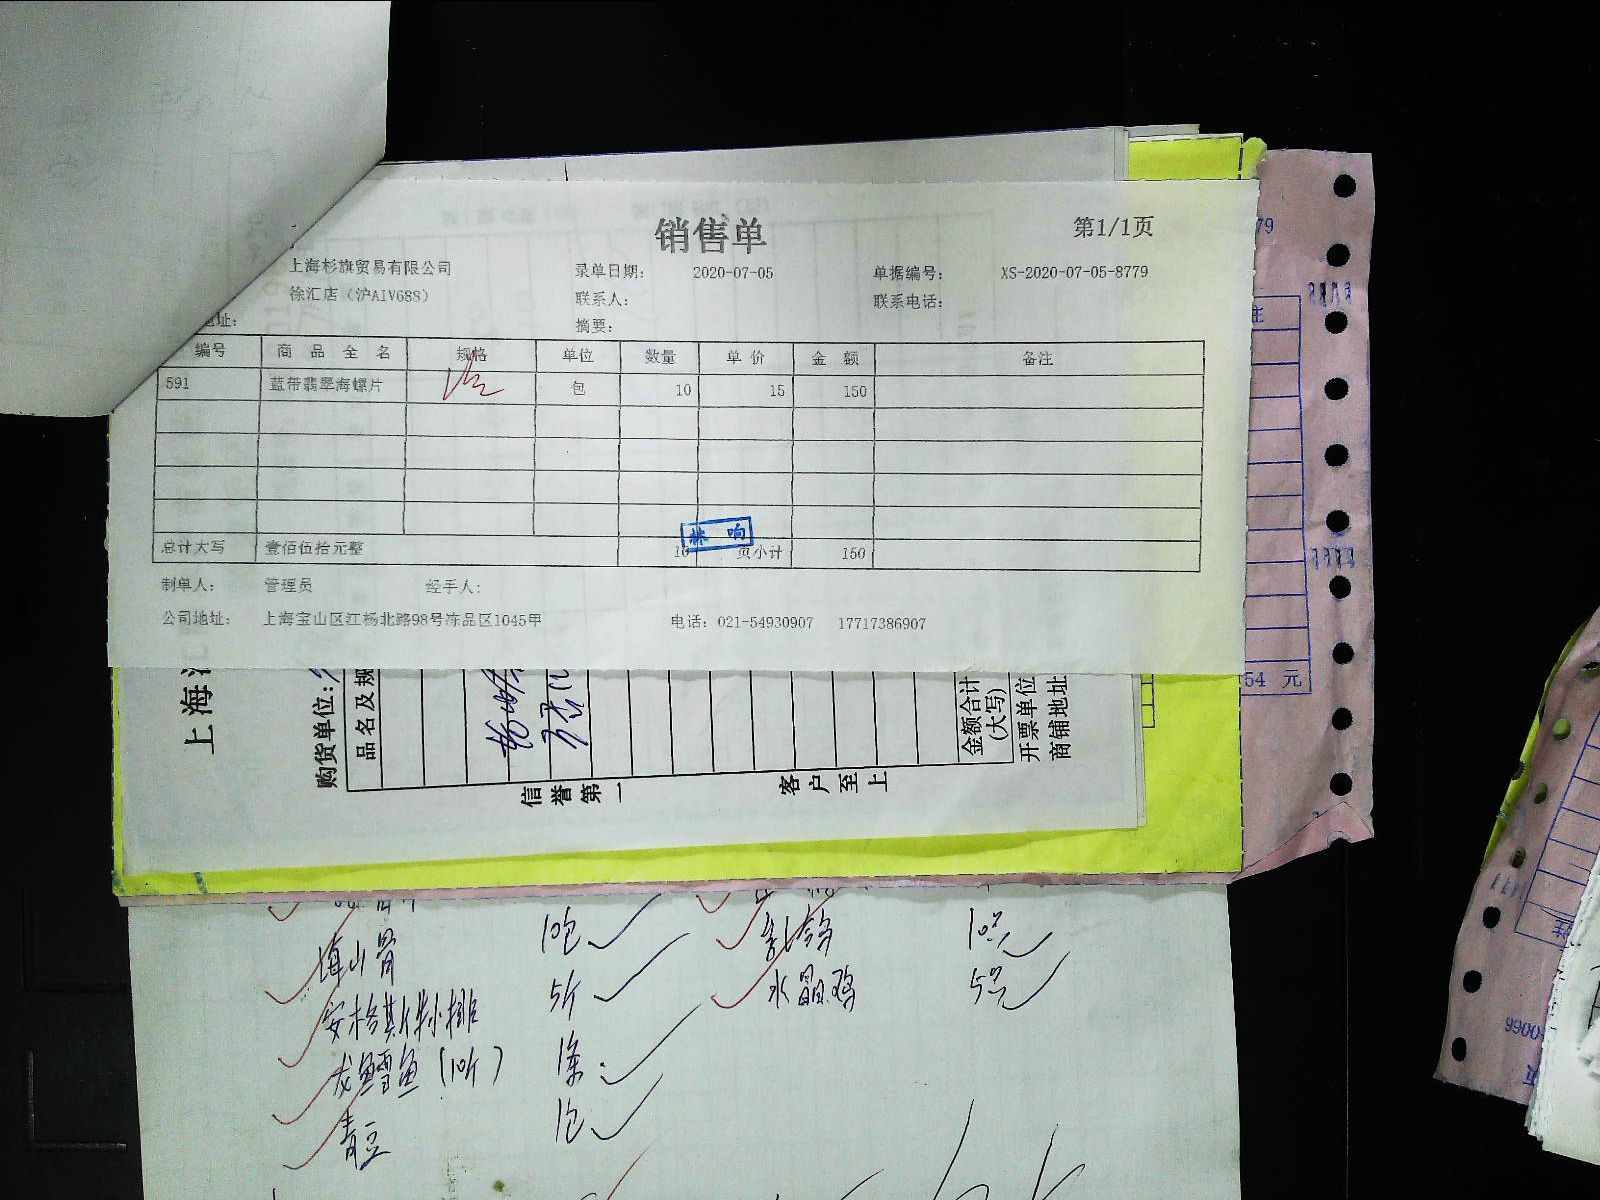 销售单
第1/1页
上海杉旗贸易有限公司 录单日期: 2020-07-05 单据编号: XS-2020-07-05-8779
徐汇店（沪AIV688） 联系人: 联系电话:
址: 摘要:
编号 商品全名 规格 单位 数量 单价 金额 备注
591 蓝带翡翠海螺片 包 10 15 150
总计大写 壹佰伍拾元整 10 页小计 150
林响
制单人: 管理员 经手人:
公司地址: 上海宝山区江杨北路98号冻品区1045甲 电话: 021-54930907 17717386907
79
54 元
上海
购货单位:
品名及规
金额合计
(大写)
开票单位
商铺地址
信誉第一
客户至上
10包 乳鸽 10只
5斤 水晶鸡 5只
安格斯牛小排
龙鳕鱼(10斤) 1条
青豆 1包